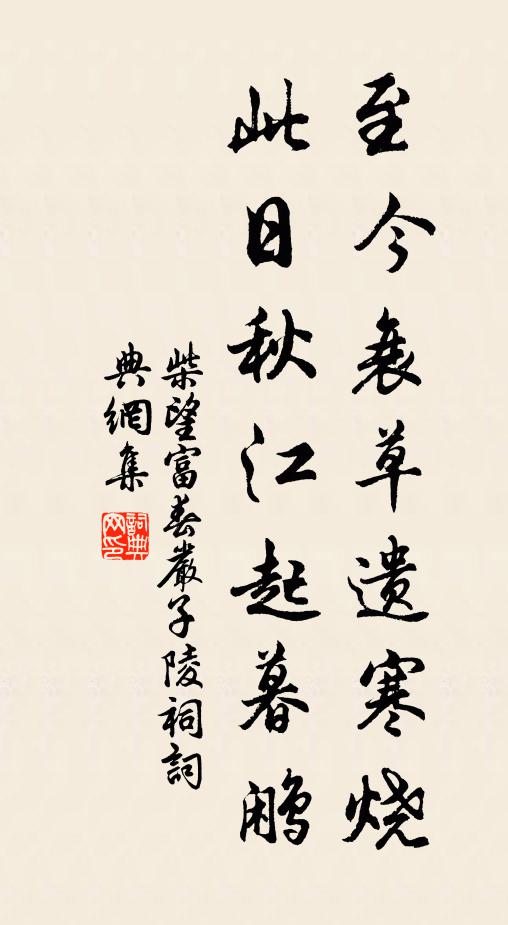 至今衰草遗寒烧
此日秋江起暮鹇
柴望富春嚴子陵祠詞
典網集
詞典
网印